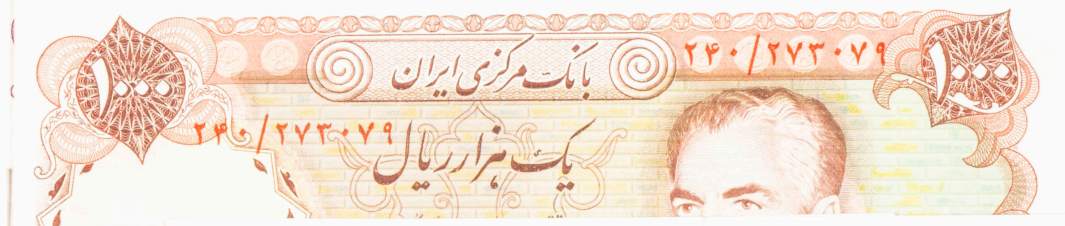 ۱۰۰۰
بانک مرکزی ایران
۲۴۰/۲۷۳۰۷۹
۱۰۰۰
۲۴۰/۲۷۳۰۷۹
یک هزار ریال